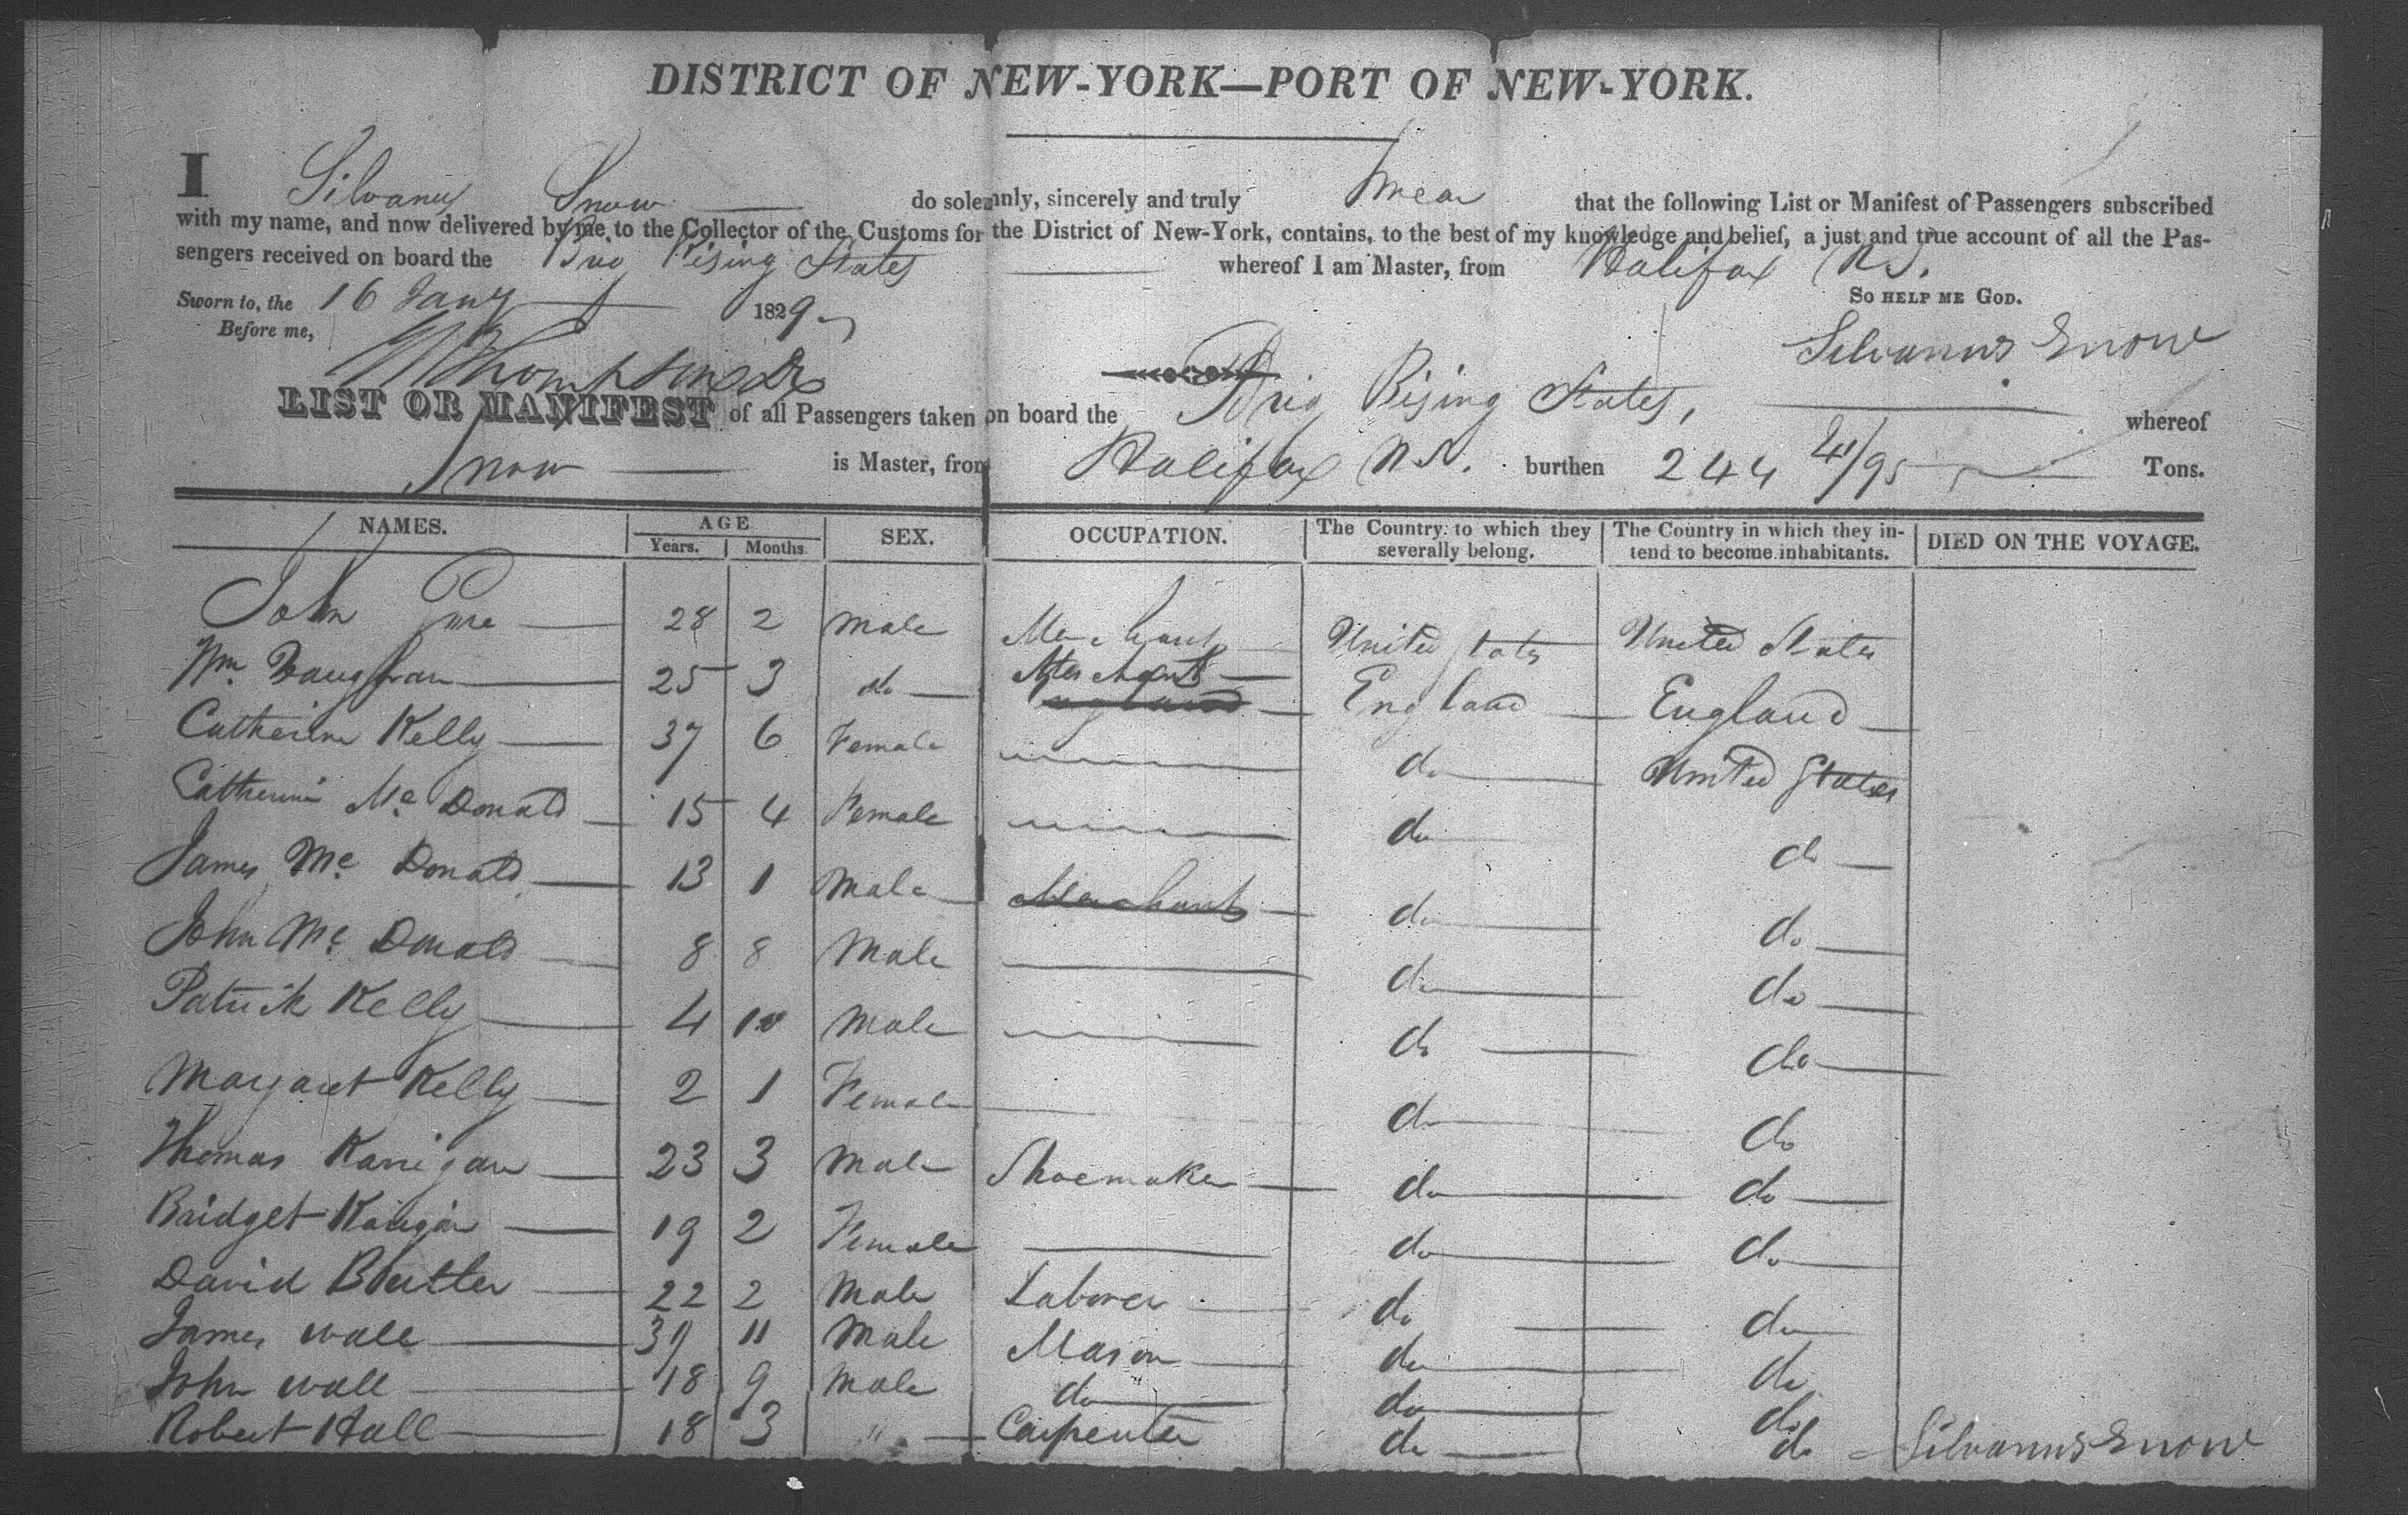 DISTRICT OF NEW-YORK—PORT OF NEW-YORK.
I Silvanus Snow do solemnly, sincerely and truly swear that the following List or Manifest of Passengers subscribed
with my name, and now delivered by me to the Collector of the Customs for the District of New-York, contains, to the best of my knowledge and belief, a just and true account of all the Pas-
sengers received on board the Brig Rising States whereof I am Master, from Halifax N.S.
Sworn to, the 16 Jany 1829 SO HELP ME GOD.
Before me, Silvanus Snow
Thompson
LIST OR MANIFEST of all Passengers taken on board the Brig Rising States, whereof
Snow is Master, from Halifax N.S. burthen 244 41/95 Tons.
NAMES. AGE Years. Months. SEX. OCCUPATION. The Country to which they severally belong. The Country in which they in-tend to become inhabitants. DIED ON THE VOYAGE.
John 28 2 Male Merchant United States United States
Wm Vaughan 25 3 do Merchant England England England
Catherine Kelly 37 6 Female do United States
Catherine Mc Donald 15 4 Female do do
James Mc Donald 13 1 Male Merchant do do
John Mc Donald 8 8 Male do do
Patrick Kelly 4 10 Male do do
Margaret Kelly 2 1 Female do do
Thomas Kanigan 23 3 Male Shoemaker do do
Bridget Kanigan 19 2 Female do do
David Butler 22 2 Male Laborer do do
James Wall 39 11 Male Mason do do
John Wall 18 9 Male do do do
Robert Hall 18 3 " Carpenter do do Silvanus Snow